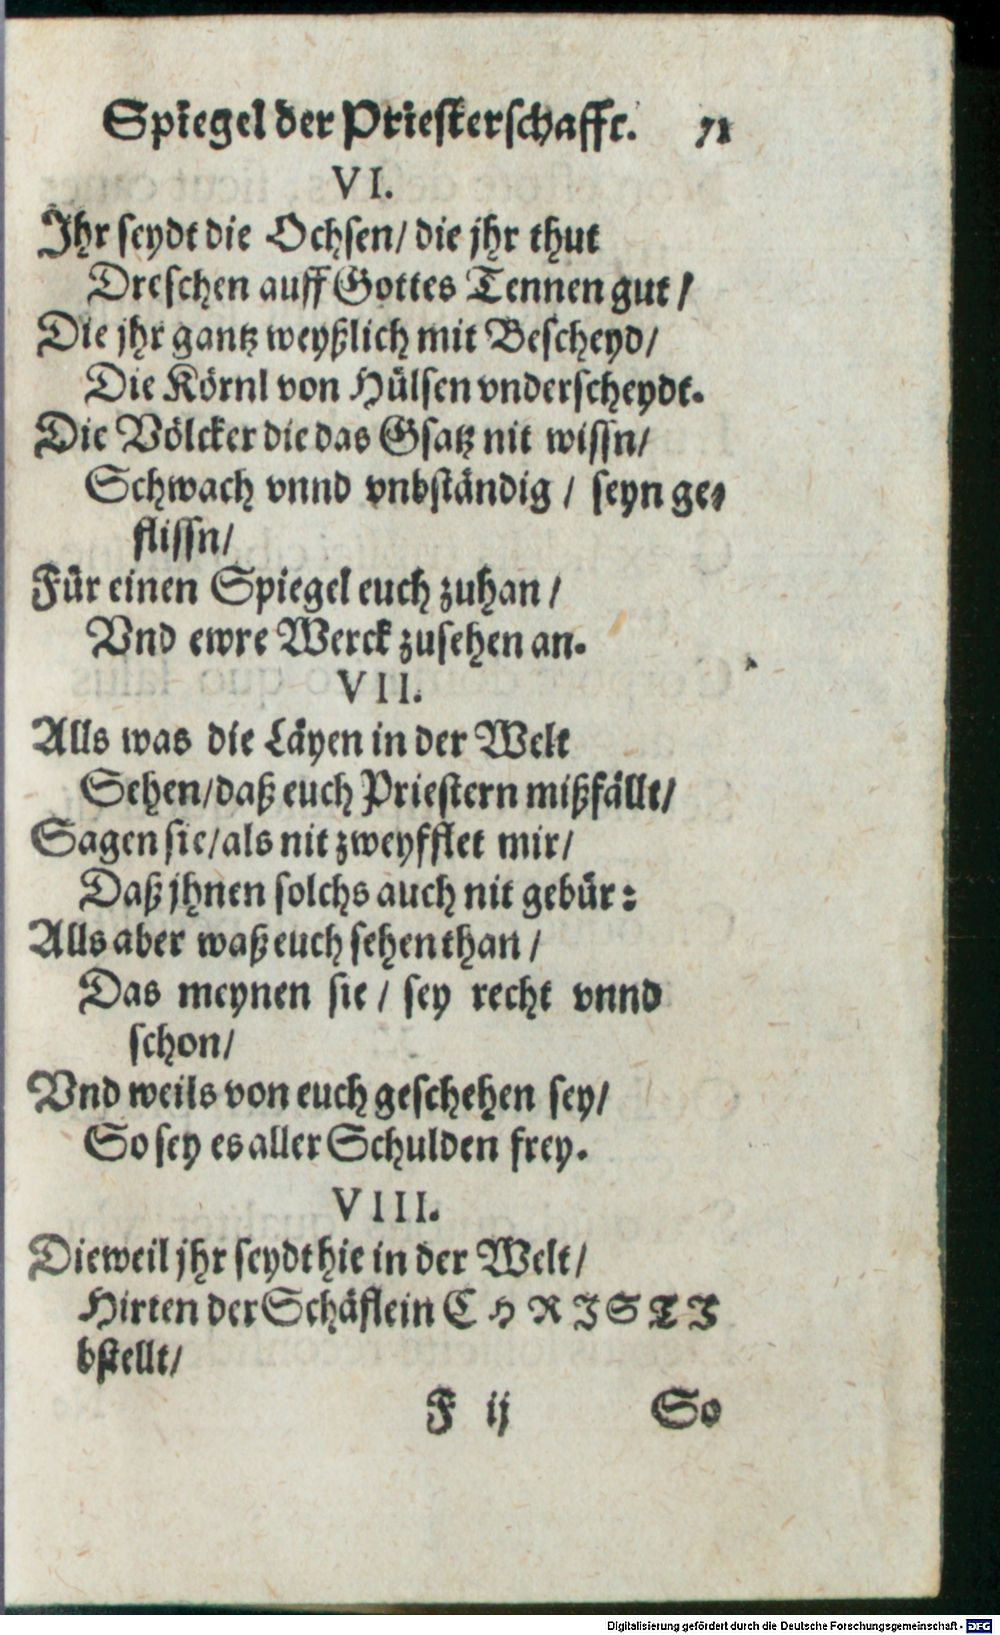 Spiegel der Priesterschafft. 71
VI.
Ihr seydt die Ochsen/ die jhr thut
Dreschen auff Gottes Tennen gut/
Die jhr gantz weyßlich mit Bescheyd/
Die Körnl von Hülsen vnderscheydt.
Die Völcker die das Gsatz nit wissn/
Schwach vnnd vnbständig / seyn ge-
flissn/
Für einen Spiegel euch zuhan/
Vnd ewre Werck zusehen an.
VII.
Alls was die Läyen in der Welt
Sehen/daß euch Priestern mißfällt/
Sagen sie/als nit zweyfflet mir/
Daß jhnen solchs auch nit gebür:
Alls aber waß euch sehen than/
Das meynen sie / sey recht vnnd
schon/
Vnd weils von euch geschehen sey/
So sey es aller Schulden frey.
VIII.
Dieweil jhr seydt hie in der Welt/
Hirten der Schäflein CHRISTI
bstellt/
F ij So
Digitalisierung gefördert durch die Deutsche Forschungsgemeinschaft - DFG